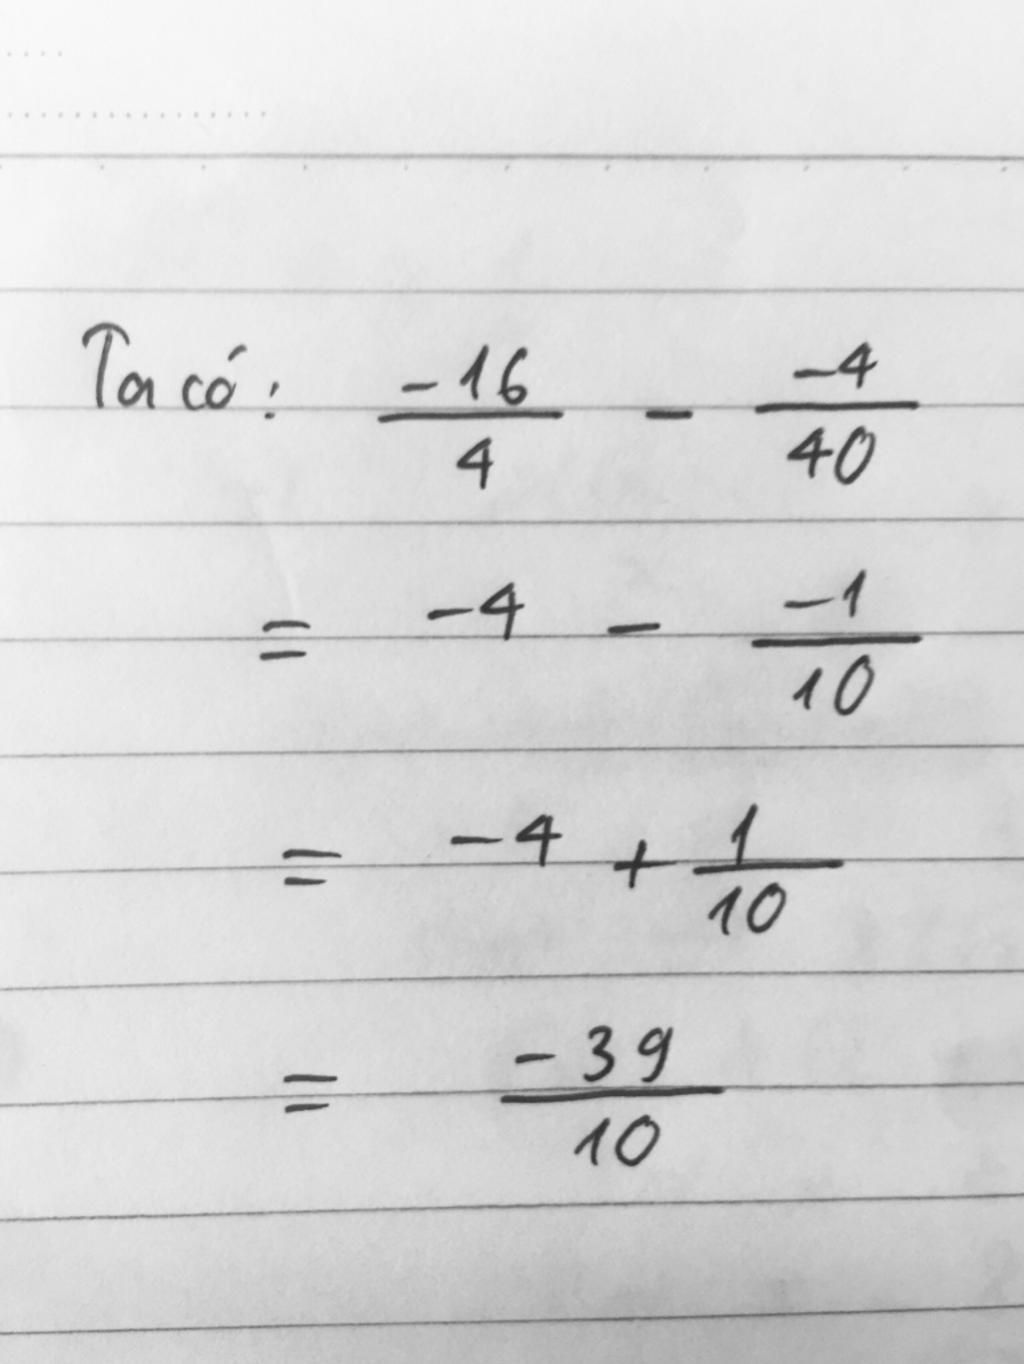 Ta có: \frac{-16}{4} - \frac{-4}{40}
= -4 - \frac{-1}{10}
= -4 + \frac{1}{10}
= \frac{-39}{10}